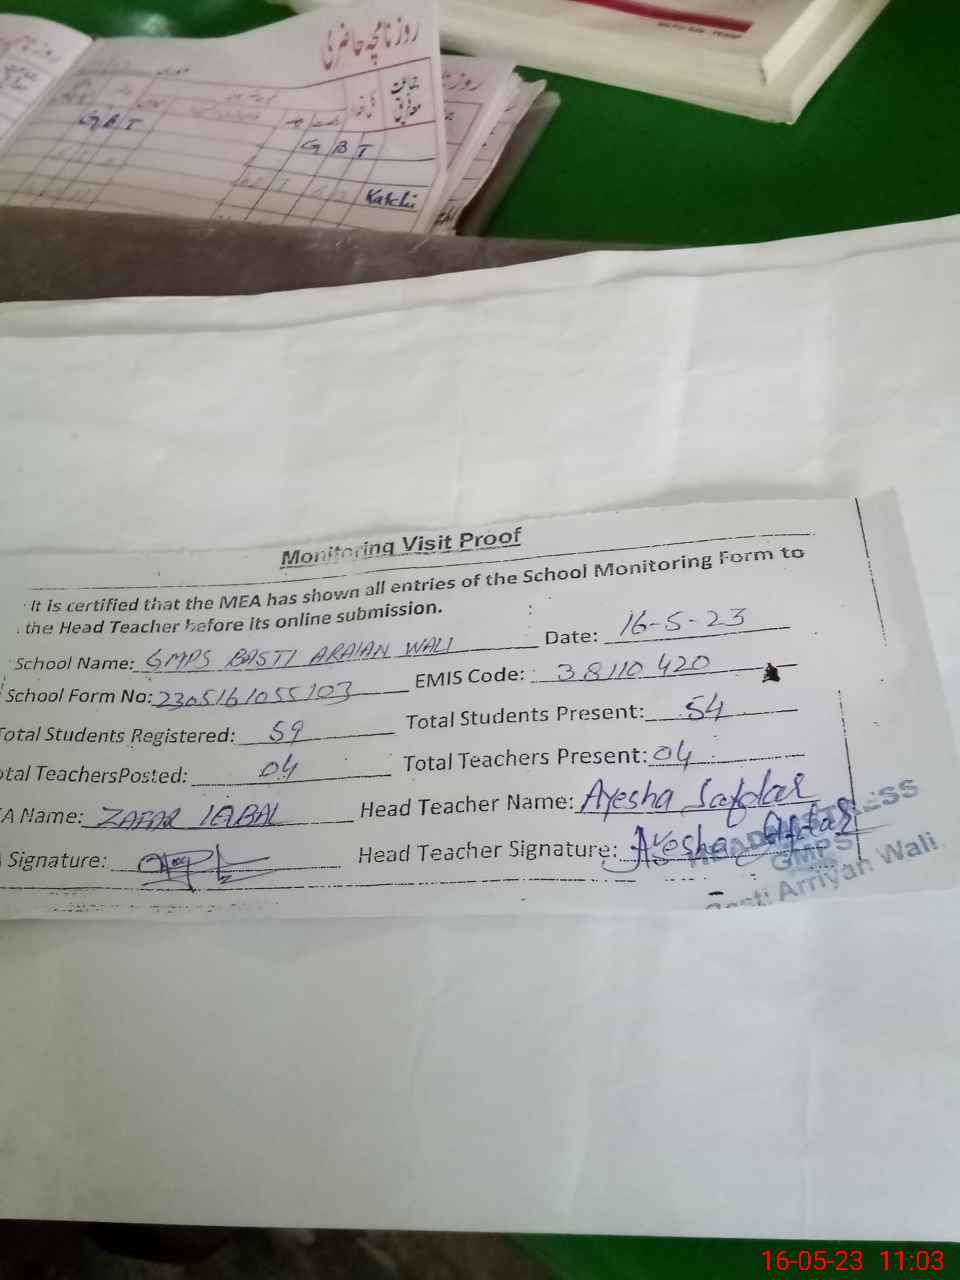 روزنامچہ حاضری
جماعت
G B T
G B T
Katchi
Monitoring Visit Proof
It is certified that the MEA has shown all entries of the School Monitoring Form to
the Head Teacher before its online submission.
School Name: GMPS BASTI ARAIAN WALI Date: 16-5-23
School Form No: 2305161055103 EMIS Code: 38110420
Total Students Registered: 59 Total Students Present: 54
tal TeachersPosted: 04 Total Teachers Present: 04
A Name: ZAFAR IQBAL Head Teacher Name: Ayesha Safdar
Signature: Head Teacher Signature: Ayesha Safdar
HEADMISTRESS
GMPS
Basti Arriyan Wali
16-05-23 11:03